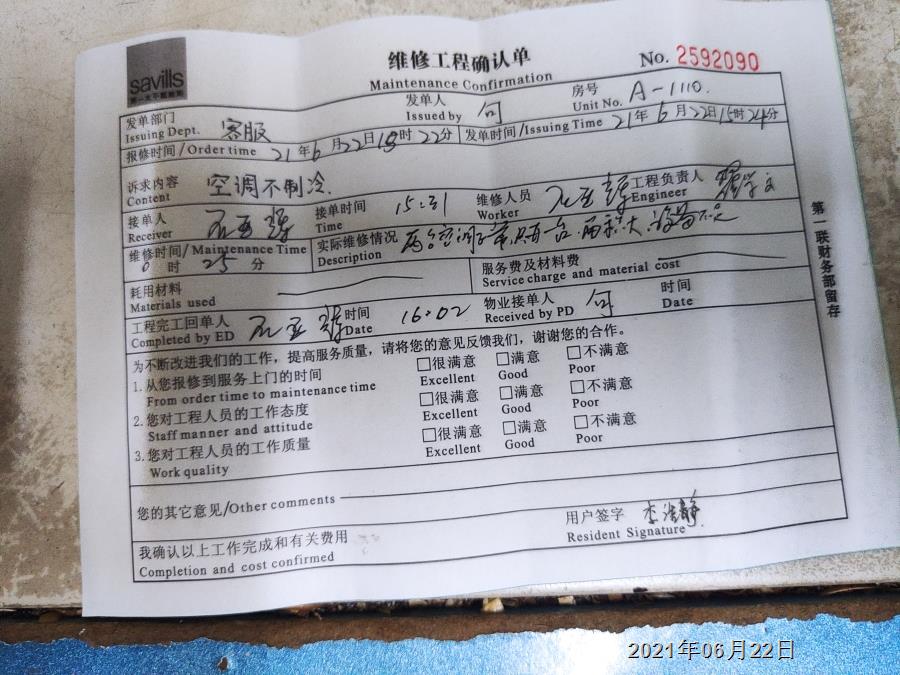 savills
第一太平戴维斯
维修工程确认单
Maintenance Confirmation
No. 2592090
发单部门 客服 发单人 句 房号 A-1110.
Issuing Dept. Issued by Unit No.
报修时间/Order time 21年6月22日15时22分 发单时间/Issuing Time 21年6月22日15时24分
诉求内容 空调不制冷. 维修人员 工程负责人
Content Worker Engineer
接单人 接单时间 15:31
Receiver Time
维修时间/Maintenance Time 0时25分
实际维修情况 两台空调
Description
耗用材料 服务费及材料费
Materials used Service charge and material cost
工程完工回单人 时间 16:02 物业接单人 句 时间
Completed by ED Date Received by PD Date
为不断改进我们的工作，提高服务质量，请将您的意见反馈我们，谢谢您的合作。
1.从您报修到服务上门的时间 □很满意 □满意 □不满意
From order time to maintenance time Excellent Good Poor
2.您对工程人员的工作态度 □很满意 □满意 □不满意
Staff manner and attitude Excellent Good Poor
3.您对工程人员的工作质量 □很满意 □满意 □不满意
Work quality Excellent Good Poor
您的其它意见/Other comments
我确认以上工作完成和有关费用 用户签字
Completion and cost confirmed Resident Signature
第一联财务部留存
2021年06月22日